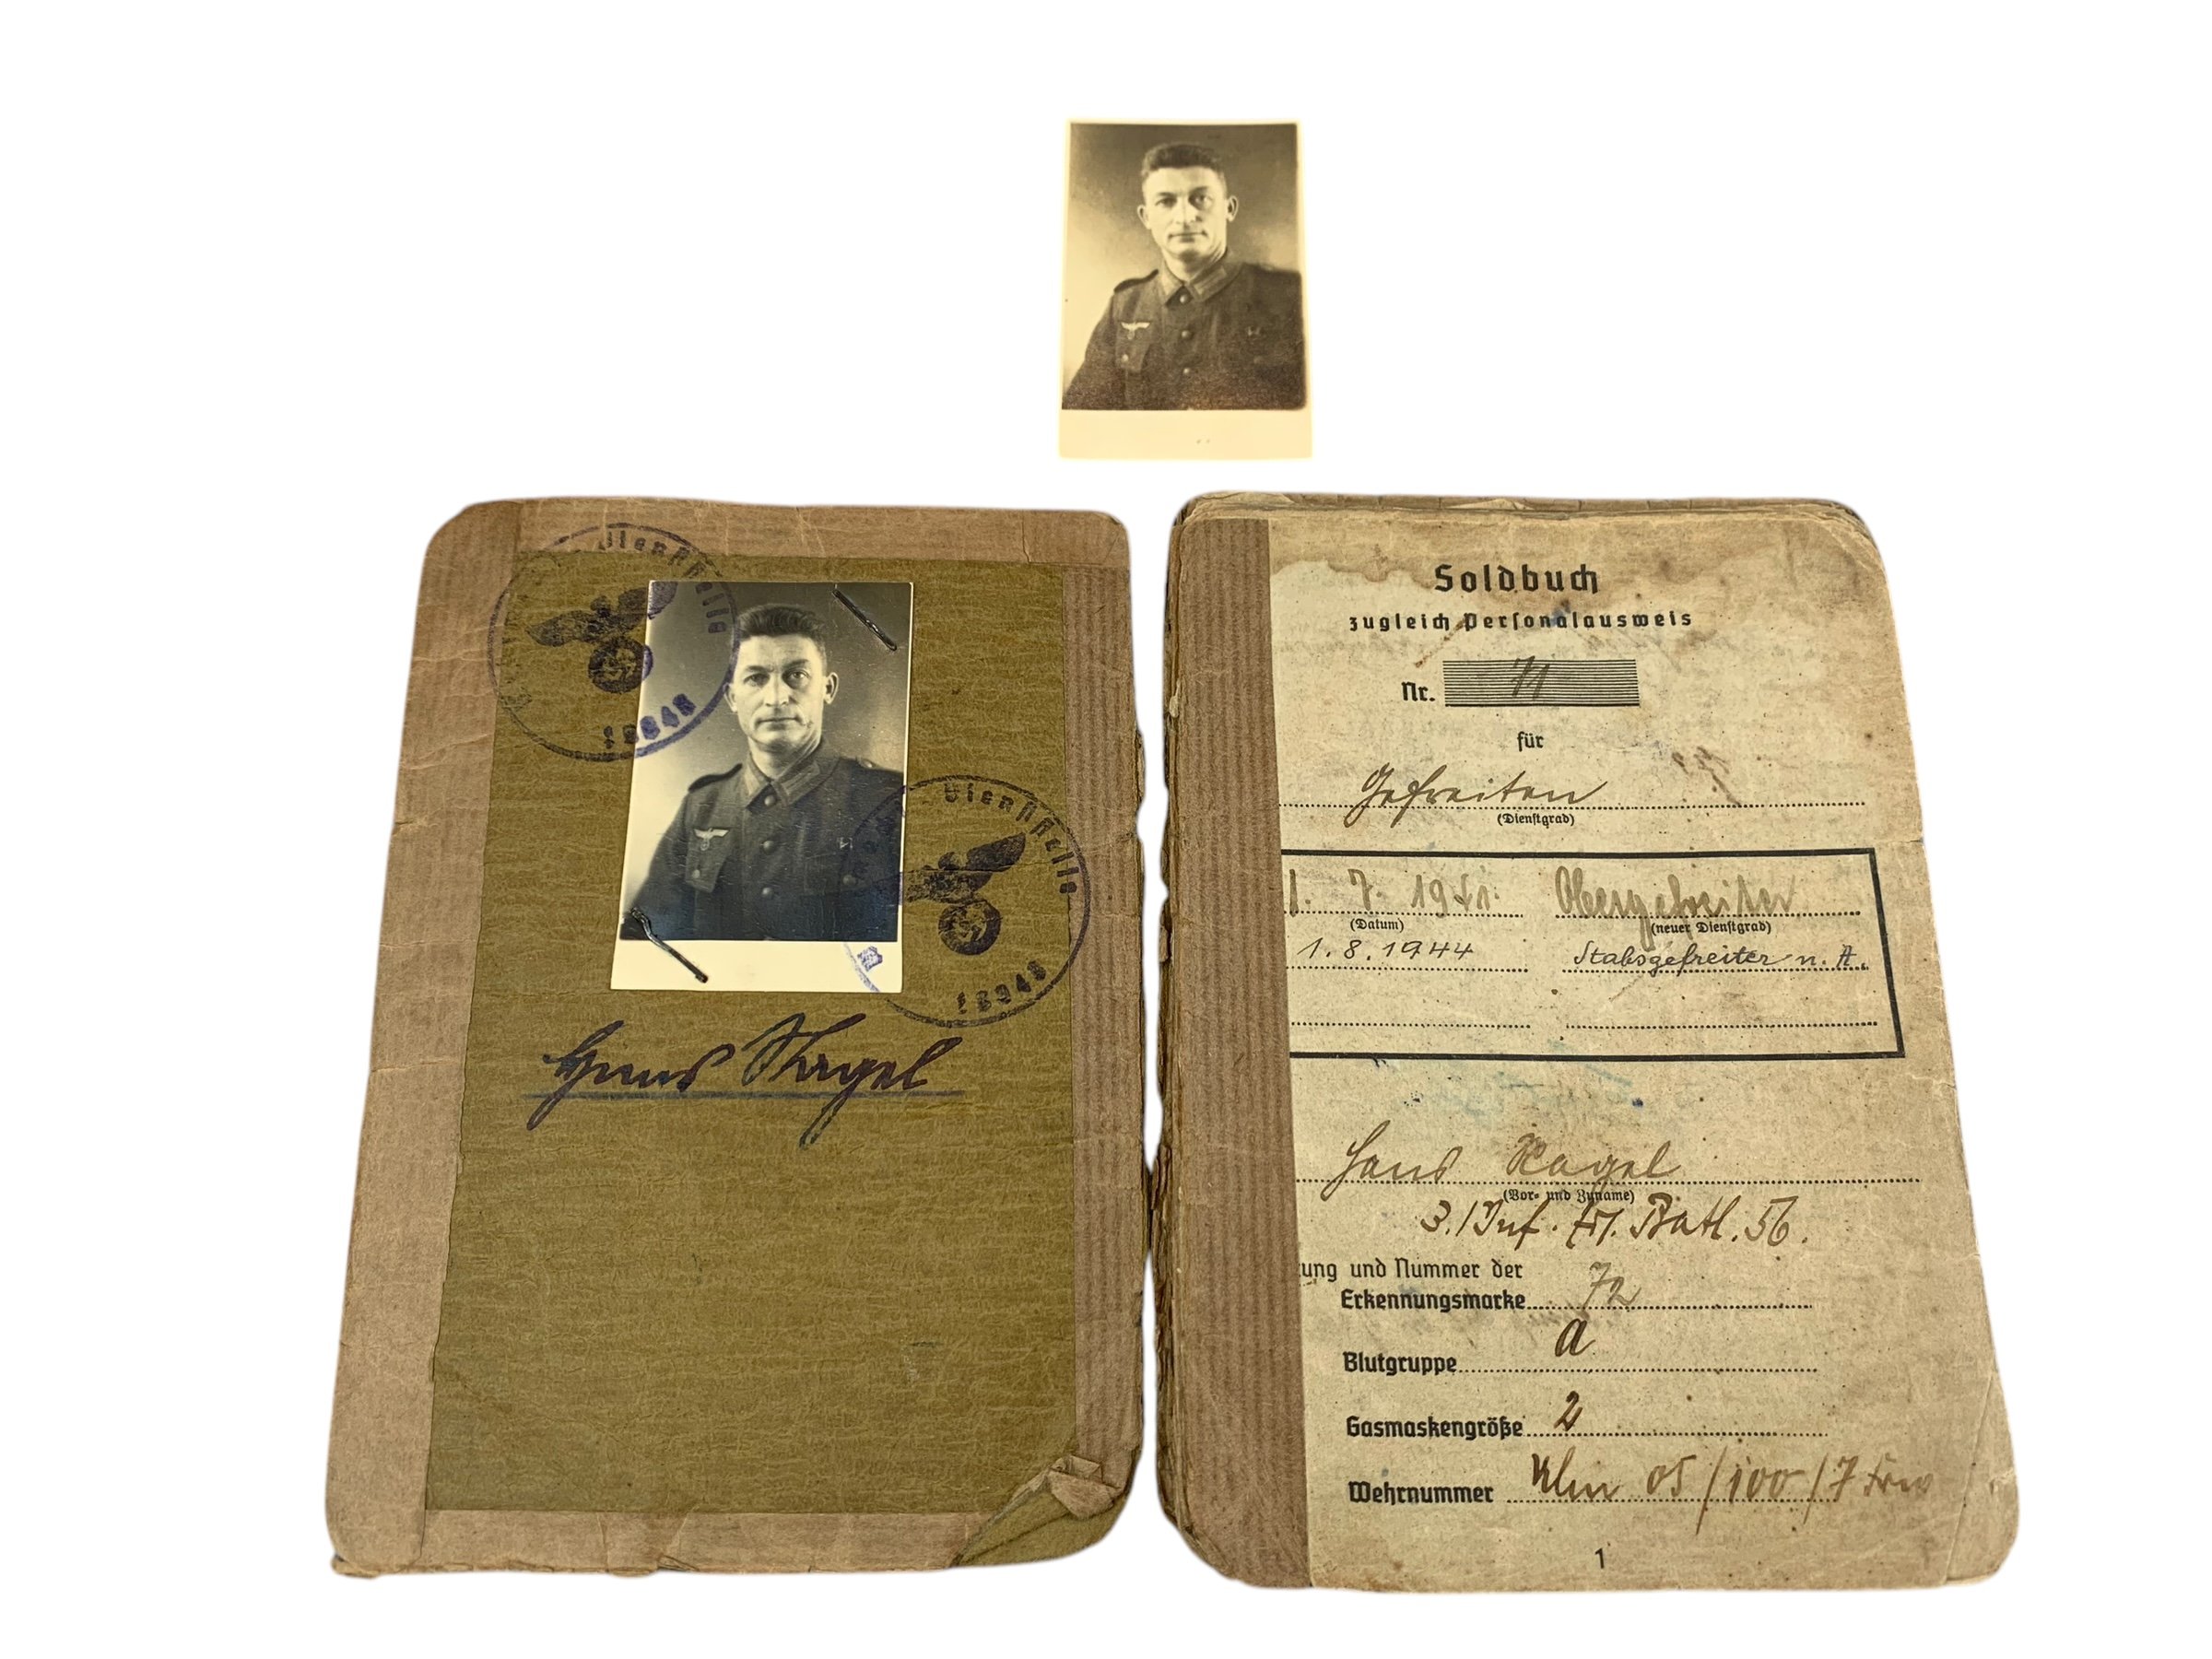 Dienststelle
Dienststelle
18948
Hans Nagel
Soldbuch
zugleich Personalausweis
Nr. 71
für
Gefreiten
(Dienstgrad)
1. 7. 1941. Obergefreiter
(Datum) (neuer Dienstgrad)
1.8.1944 Stabsgefreiter n. A.
Hans Nagel
(Vor- und Zuname)
3./Inf. Batl. 56.
ung und Nummer der
Erkennungsmarke 72
Blutgruppe a
Gasmaskengröße 2
Wehrnummer 05/100/7
1